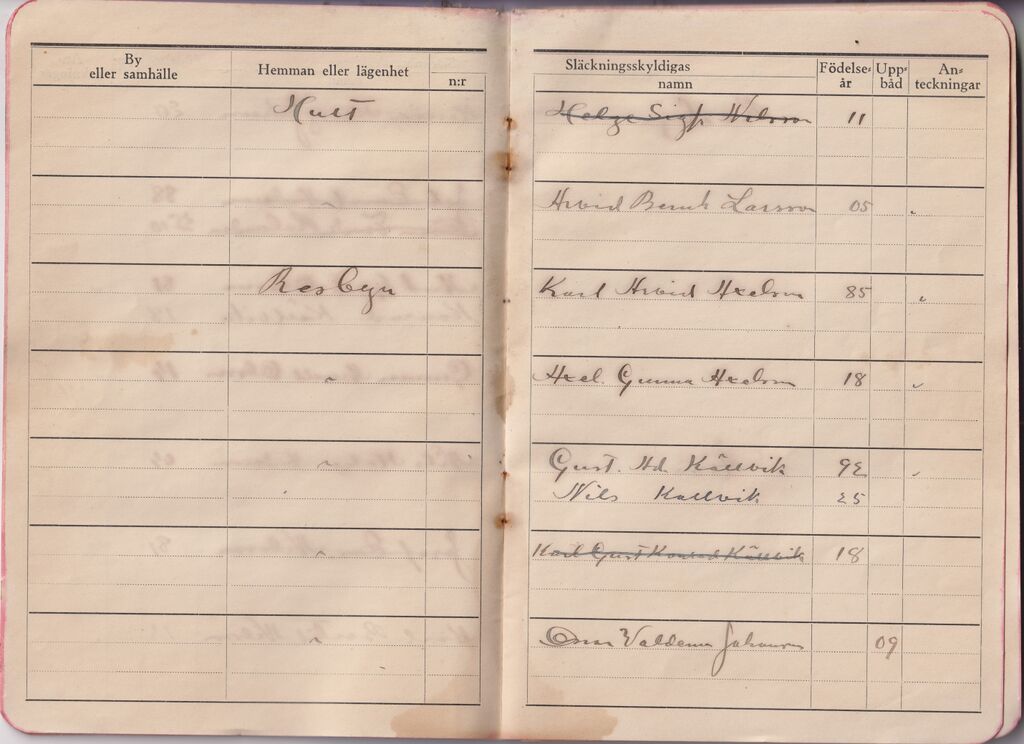 By
eller samhälle
Hemman eller lägenhet
n:r
Släckningsskyldigas
namn
Födelse-
år
Upp-
båd
An-
teckningar
Hult Helge Sigf. Nilsson 11
Arvid Larsson 05 "
Karl Arvid Axelson 85 "
" Axel Gunnar Axelson 18 "
" Gust. Ad Källvik 92 "
Nils Kallvik 25
" Karl Gust Konrad Källvik 18
" Valdemar Johansson 09